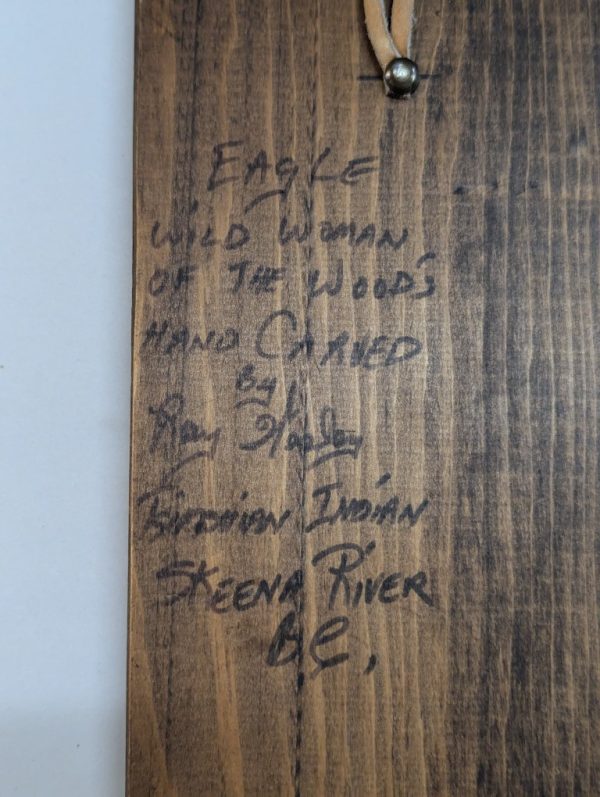 EAGLE
WILD WOMAN
OF THE WOOD'S
HAND CARVED
By
Ray
INDIAN
SKEENA RIVER
B.C.